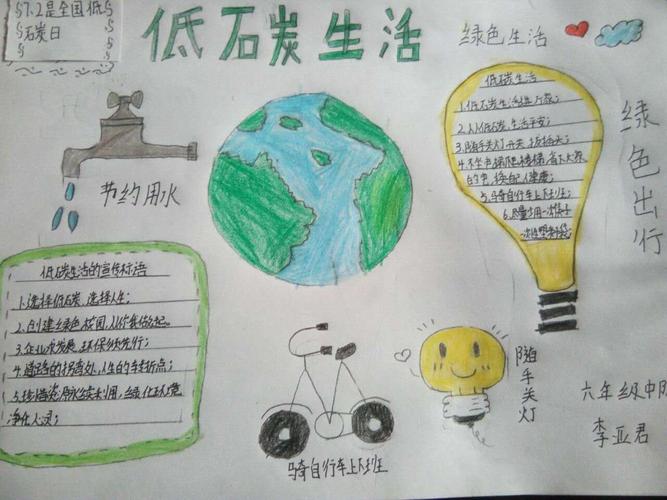 7.2是全国低
碳日
低石炭生活
绿色生活
节约用水
低碳生活
1.低碳生活进万家;
2.人人低碳,生活平安;
3.随手关灯开关、拔插头;
4.不坐电梯爬楼梯,省下大家
的电,换自己健康;
5.骑自行车上下班;
6.尽量少用一次性
绿色出行
低碳生活的宣传标语
1.选择低碳,选择人生;
2.创建绿色校园,从你我做起。
3.企业求发展,环保须先行;
4.道路的拐弯处,人生的转折点;
净化人心;
随手关灯
骑自行车上下班
六年级中队
李亚君